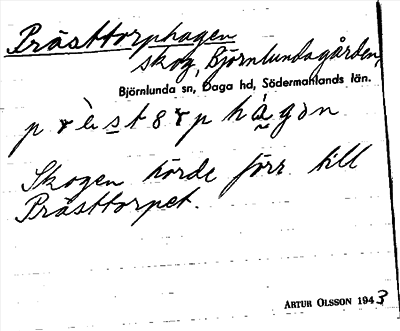 Prästtorphagen
skog, Björnlundagården,
Björnlunda sn, Daga hd, Södermanlands län.
Skogen hörde förr till
Prästtorpet.
ARTUR OLSSON 1943